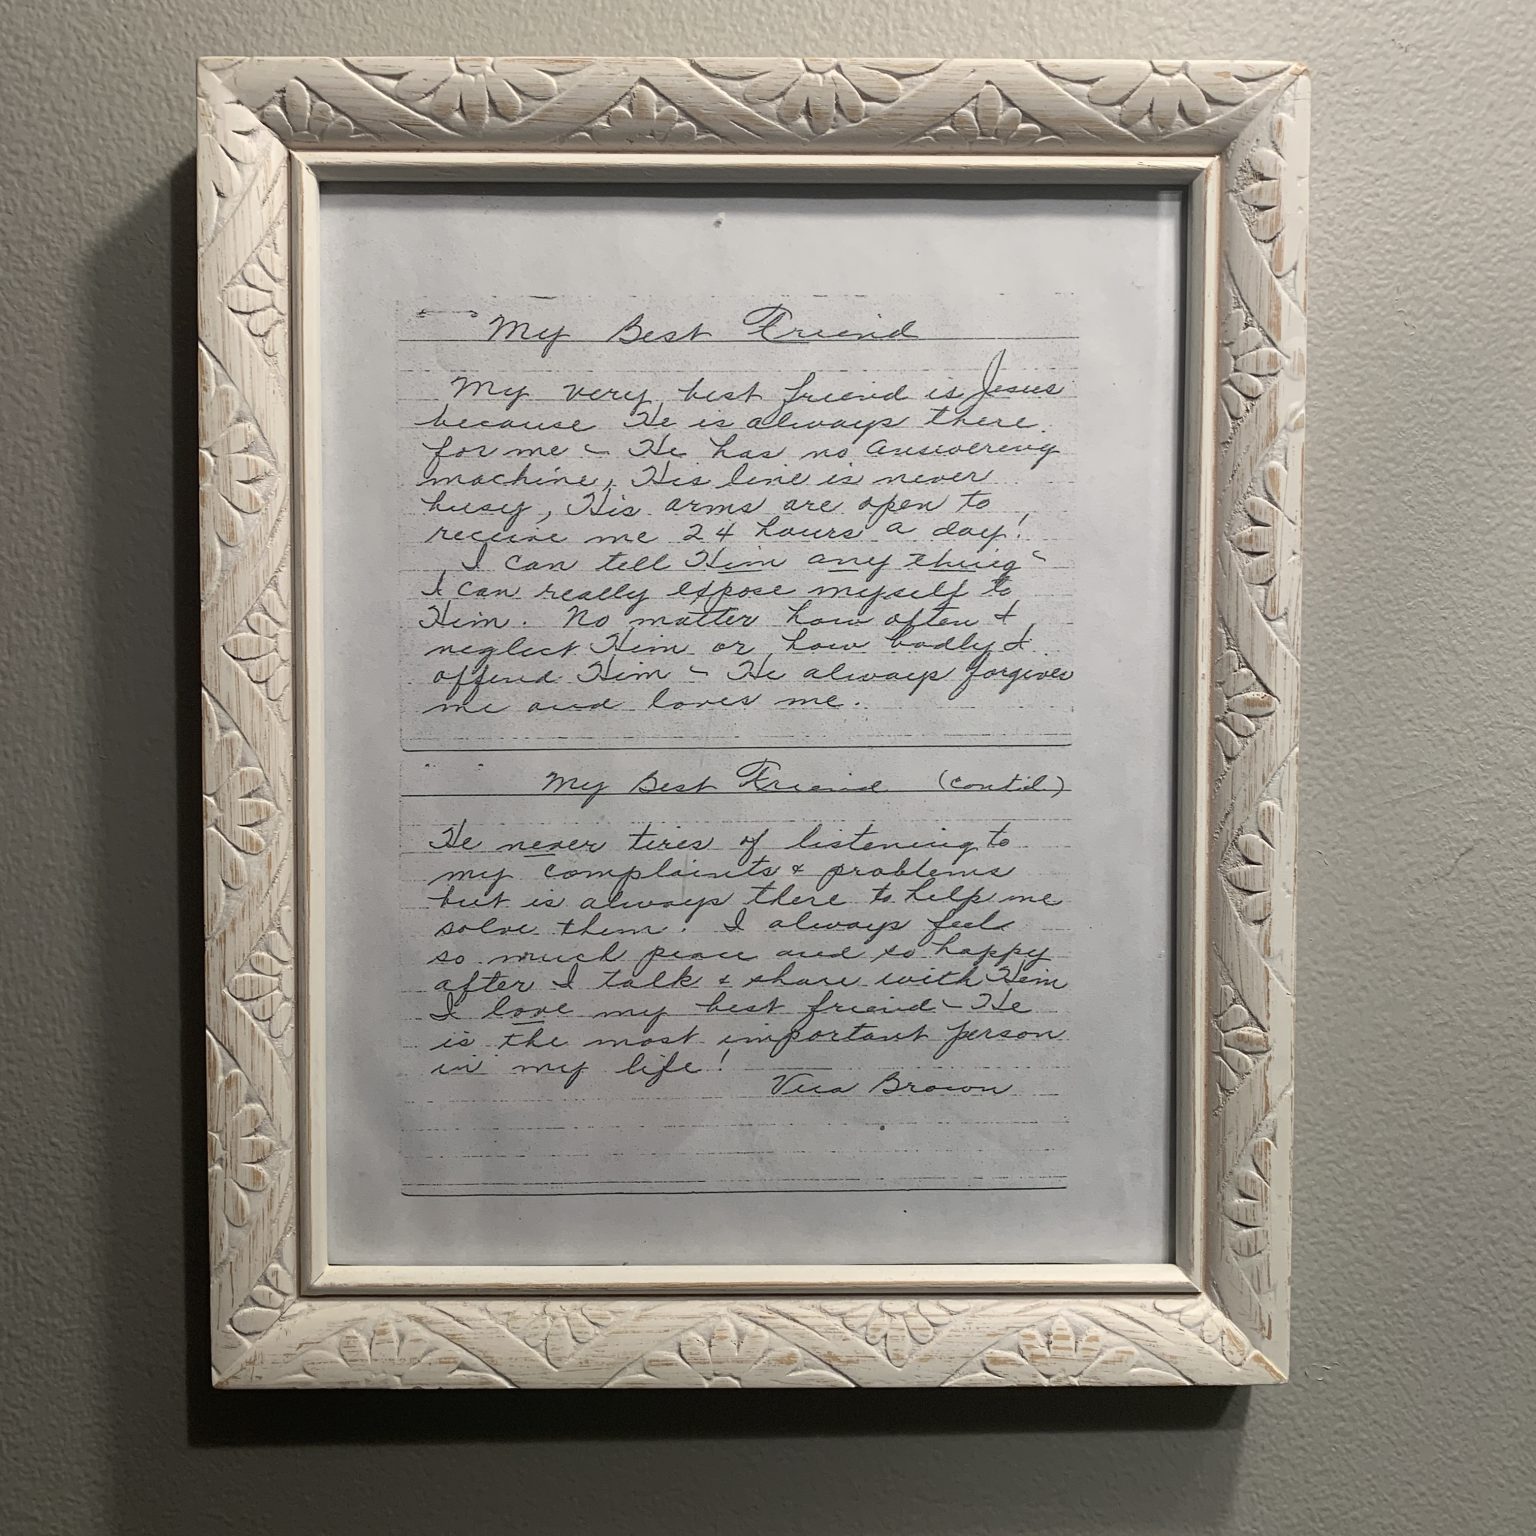 My Best Friend
My very best friend is Jesus
because He is always there
for me - He has no answering
machine, His line is never
busy, His arms are open to
receive me 24 hours a day!
I can tell Him any thing -
I can really expose myself to
Him. No matter how often I
neglect Him or how badly I
offend Him - He always forgives
me and loves me.
My Best Friend (cont'd.)
He never tires of listening to
my complaints & problems
but is always there to help me
solve them. I always feel
so much peace and so happy
after I talk & share with Him
I love my best friend - He
is the most important person
in my life!
Vera Brown